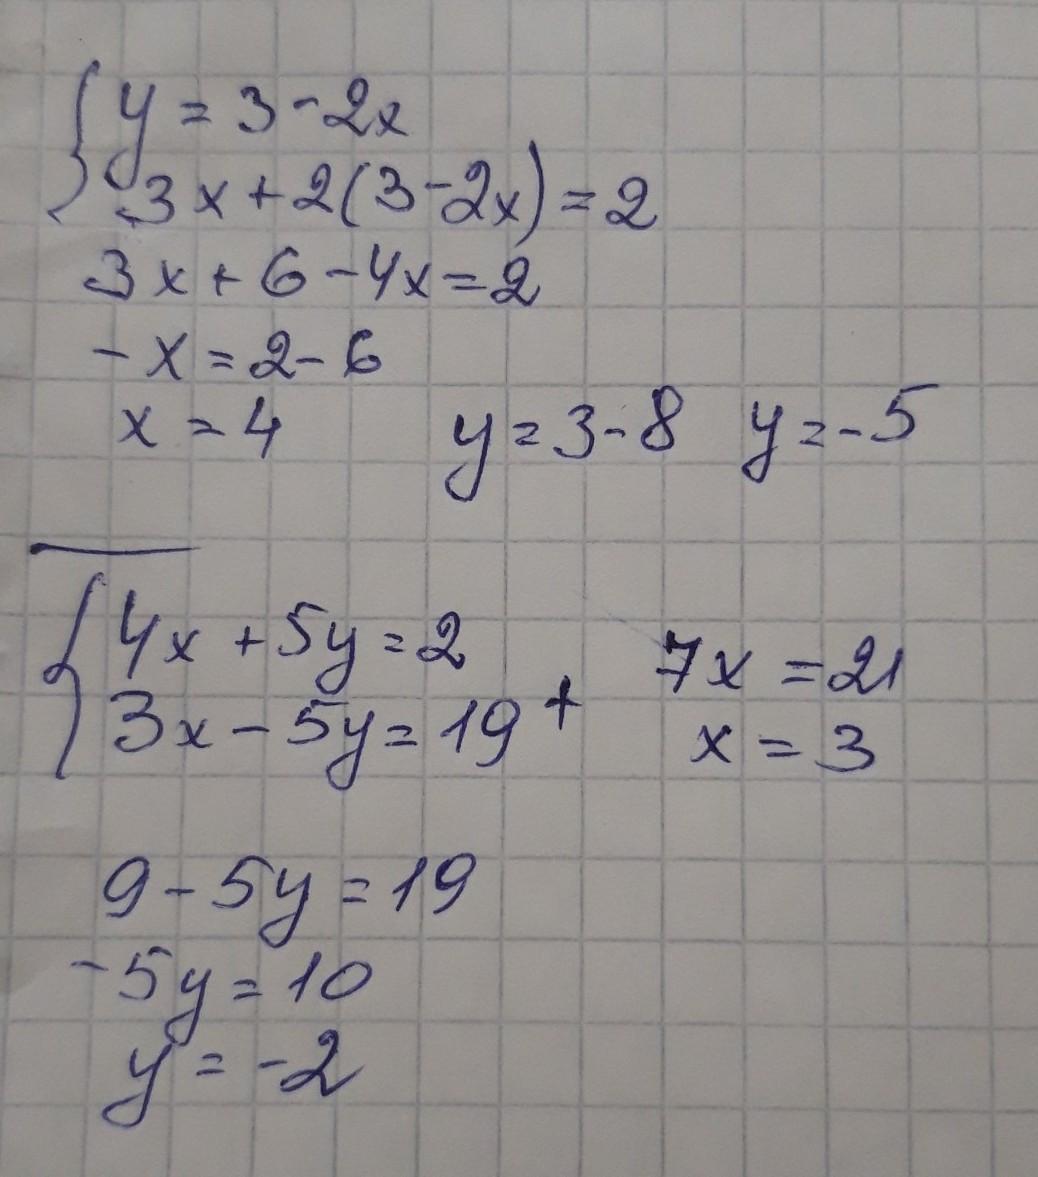 y = 3 - 2x
3x + 2(3 - 2x) = 2
3x + 6 - 4x = 2
- x = 2 - 6
x = 4 y = 3 - 8 y = - 5
4x + 5y = 2
3x - 5y = 19 +
7x = 21
x = 3
9 - 5y = 19
- 5y = 10
y = - 2